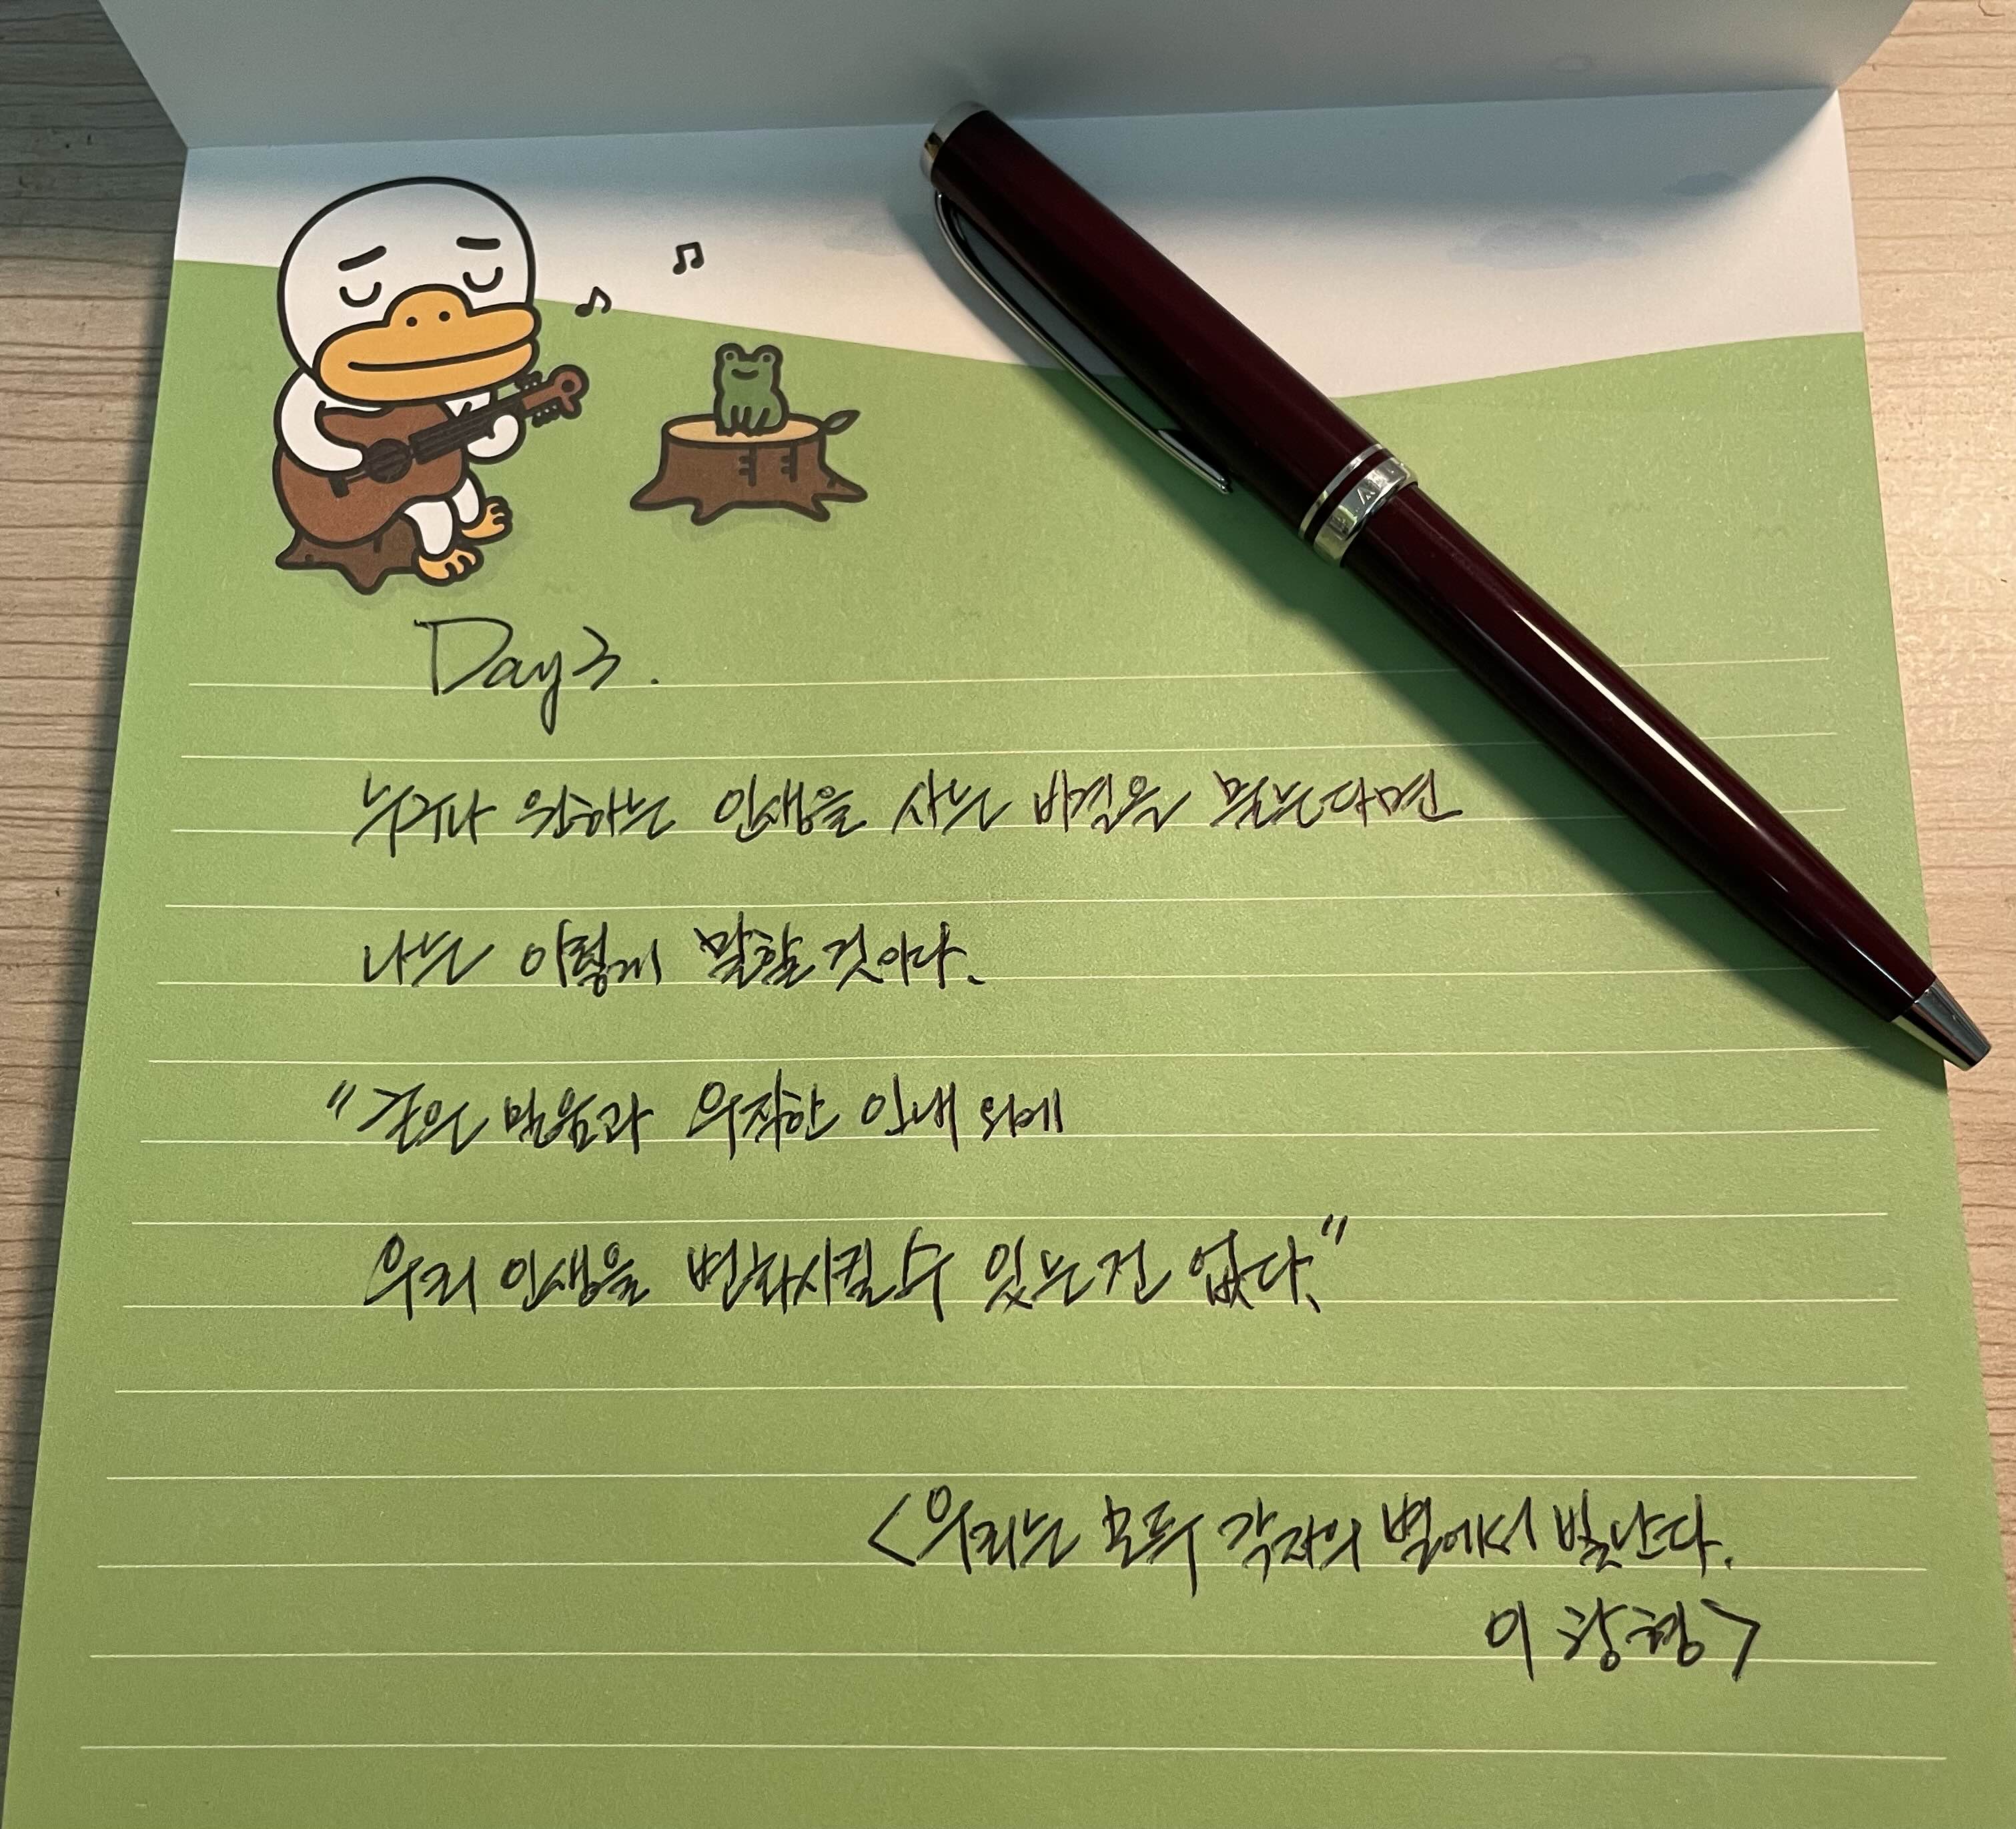 Day 3.
누구나 원하는 인생을 사는 비결을 묻는다면
나는 이렇게 말할 것이다.
"굳은 믿음과 우직한 인내 외에
우리 인생을 변화시킬 수 있는 건 없다."
<우리는 모두 각자의 별에서 빛난다.
이창현>